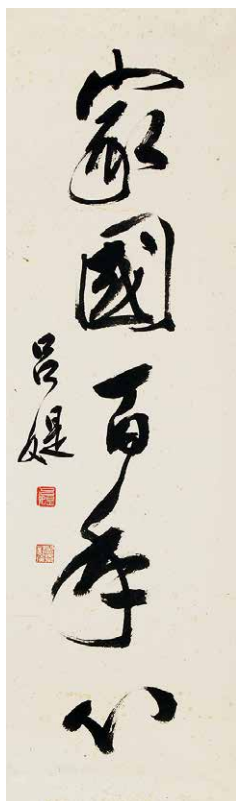 家國百年心
呂媞